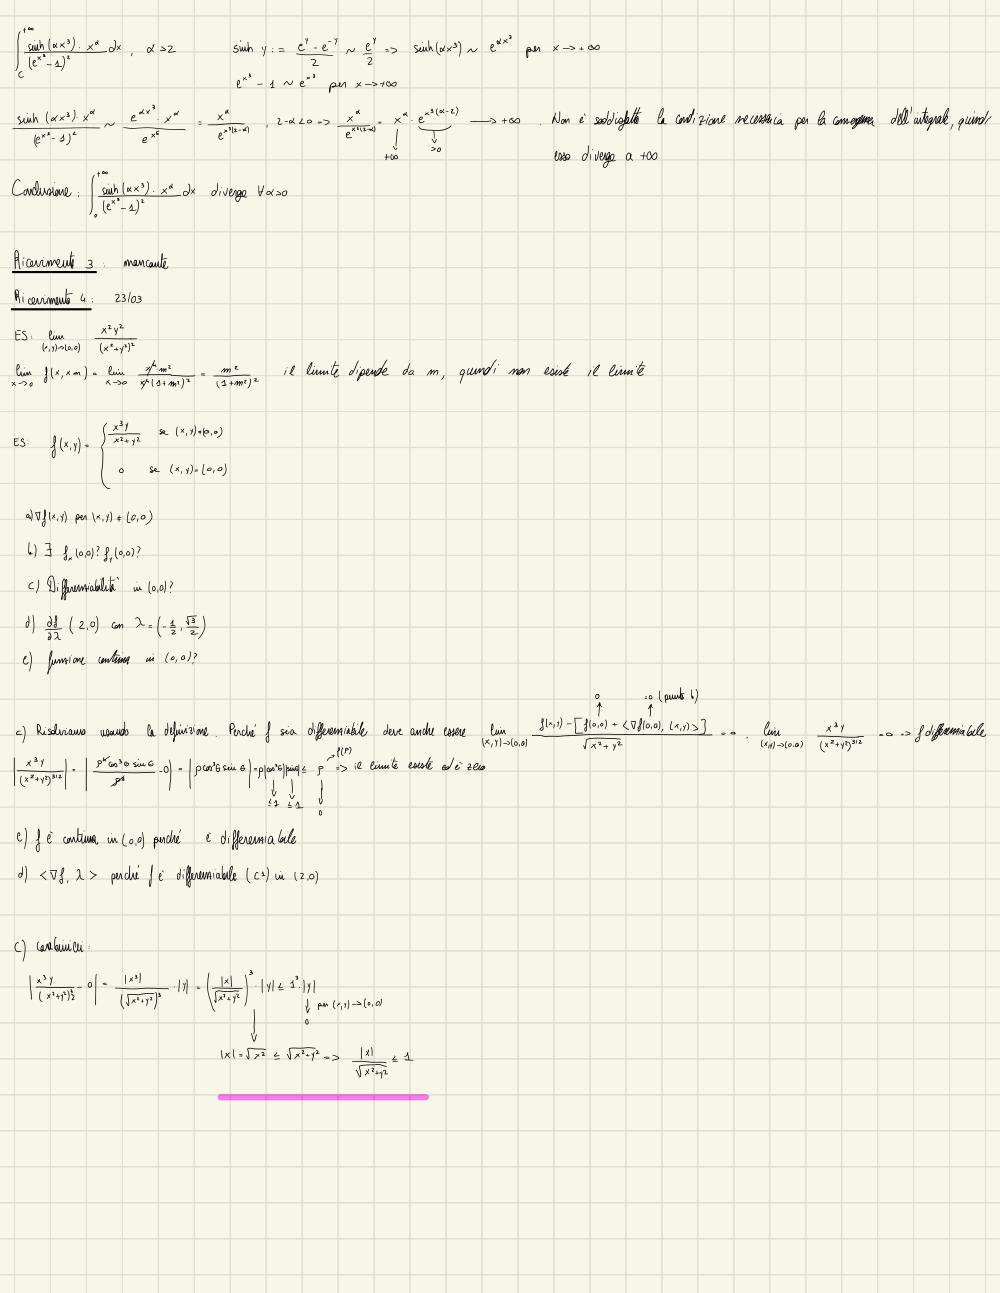 ∫_C^{+∞} sinh(αx³)·x^α / (e^{x³}-1)² dx, α>2   sinh y := (e^y - e^{-y})/2 ~ e^y/2 => sinh(αx³) ~ e^{αx³} per x→+∞
e^{x³} - 1 ~ e^{x³} per x→+∞
sinh(αx³)·x^α / (e^{x³}-1)² ~ e^{αx³}·x^α / e^{x⁶} = x^α / e^{x³(2-α)}, 2-α<0 => x^α / e^{x³(2-α)} = x^α · e^{x³(α-2)} → +∞. Non è soddisfatta la condizione necessaria per la convergenza dell'integrale, quindi
+∞   >0   esso diverge a +∞
Conclusione: ∫_0^{+∞} sinh(αx³)·x^α / (e^{x³}-1)² dx diverge ∀α>0
Ricevimento 3: mancante
Ricevimento 4: 23/03
ES: lim_{(x,y)→(0,0)} x²y² / (x²+y²)²
lim_{x→0} f(x,xm) = lim_{x→0} x⁴m² / x⁴(1+m²)² = m² / (1+m²)²   il limite dipende da m, quindi non esiste il limite
ES: f(x,y) = { x³y / x²+y² se (x,y)≠(0,0)
0 se (x,y)=(0,0)
a) ∇f(x,y) per (x,y) ≠ (0,0)
b) ∃ f_x(0,0)? f_y(0,0)?
c) Differenziabilità in (0,0)?
d) ∂f/∂λ (2,0) con λ = (-1/2, √3/2)
e) funzione continua in (0,0)?
0   =0 (punto b)
c) Risolviamo usando la definizione. Perché f sia differenziabile deve anche essere lim_{(x,y)→(0,0)} f(x,y) - [f(0,0) + <∇f(0,0), (x,y)>] / √x²+y² = 0. lim_{(x,y)→(0,0)} x³y / (x²+y²)^{3/2} = 0 => f differenziabile
|x³y / (x²+y²)^{3/2}| = |ρ⁴cos³θ sin θ / ρ³ - 0| = |ρcos³θ sin θ| = ρ|cos³θ||sinθ| ≤ ρ => il limite esiste ed è zero
g(ρ)
≤1   ≤1   0
e) f è continua in (0,0) perché è differenziabile
d) <∇f, λ> perché f è differenziabile (C¹) in (2,0)
C) carabinieri:
|x³y / (x²+y²)^{3/2} - 0| = |x³| / (√x²+y²)³ · |y| = (|x| / √x²+y²)³ · |y| ≤ 1³·|y|
per (x,y)→(0,0)
0
|x| = √x² ≤ √x²+y² => |x| / √x²+y² ≤ 1